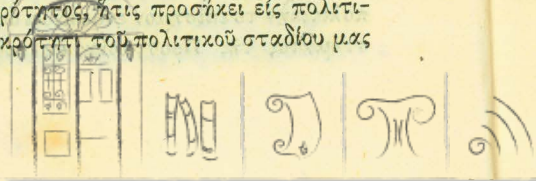 ρότητος, ἥτις προσήκει εἰς πολιτι-
κρότητι τοῦ πολιτικοῦ σταδίου μας